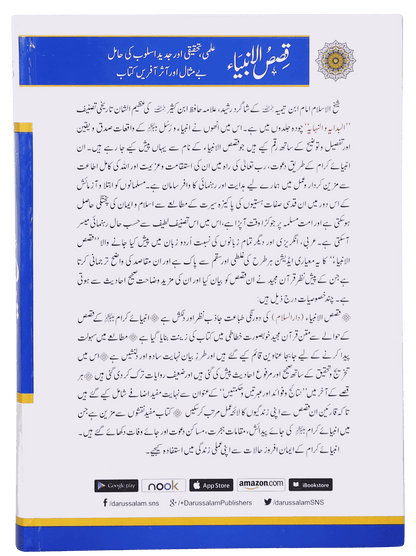 قصص الانبیاء
علمی، تحقیقی اور جدید اسلوب کی حامل
بے مثال اور آثر آفریں کتاب
شیخ الاسلام امام ابن تیمیہ کے شاگرد رشید، علامہ حافظ ابن کثیر کی عظیم الشان تاریخی تصنیف
"البدایہ والنہایہ" چودہ جلدوں میں ہے۔ اس میں انھوں نے انبیاء و رسل کے واقعات صدق و یقین
اور تفصیل و توضیح کے ساتھ رقم کیے ہیں جو قصص الانبیاء کے نام سے یہاں پیش کیا جا رہے ہیں۔ ان
انبیائے کرام کے طریق دعوت، رب تعالیٰ کی راہ میں ان کی استقامت و عزیمت اور اللہ کی کامل اطاعت
سے مزین کردار و عمل میں ہمارے لیے ہدایت اور رہنمائی کا وافر سامان ہے۔ مسلمانوں کو ابتلا و آزمائش
کے اس دور میں ان قدسی صفات ہستیوں کی پاکیزہ سیرت کے مطالعے سے اسلام و ایمان کی پختگی حاصل
ہو سکتی ہے اور امت مسلمہ پر جو کڑا وقت آ پڑا ہے، اس میں اس تصنیف لطیف سے حسب حال رہنمائی میسر
آ سکتی ہے۔ عربی، انگریزی اور دیگر تمام زبانوں کی نسبت اُردو زبان میں پیش کیا جانے والا "قصص
الانبیاء" کا یہ معیاری ایڈیشن ہر طرح کی غلطی اور سقم سے پاک ہے اور ان مقاصد کی واضح ترجمانی کرتا
ہے جن کے پیش نظر قرآن مجید نے ان قصص کو بیان کیا اور ان کی مزید وضاحت صحیح احادیث سے ہوتی
ہے۔ چند خصوصیات درج ذیل ہیں:
قصص الانبیاء (دارالسلام) کی دو رنگی طباعت جاذب نظر اور دلکش ہے انبیائے کرام کے قصص
کے حوالے سے متن قرآن مجید خوبصورت خطاطی میں کتاب کی زینت بنایا گیا ہے مطالعے میں سہولت
پیدا کرنے کے لیے جابجا عناوین قائم کیے گئے ہیں اور طرز بیان نہایت سادہ اور دلنشیں ہے اس میں
تخریج و تحقیق کے ساتھ صحیح اور مرفوع احادیث پیش کی گئی ہیں اور ضعیف روایات ترک کر دی گئی ہیں ہر
قصے کے آخر میں "نتائج و فوائد اور عبرتیں و حکمتیں" کے عنوان سے نہایت مفید اضافے شامل کیے گئے ہیں
تاکہ قارئین ان قصص سے اپنی زندگیوں کا لائحہ عمل مرتب کر سکیں کتاب مفید نقشوں سے مزین ہے جن
میں انبیائے کرام کی جائے پیدائش، مقامات ہجرت، مساکن دعوت اور جائے وفات دکھائے گئے ہیں۔
انبیائے کرام کے ایمان افروز حالات سے اپنی عملی زندگی میں استفادہ کیجیے۔
Google play nook App Store amazon.com iBookstore
/darussalam.sns /+DarussalamPublishers /darussalamSNS